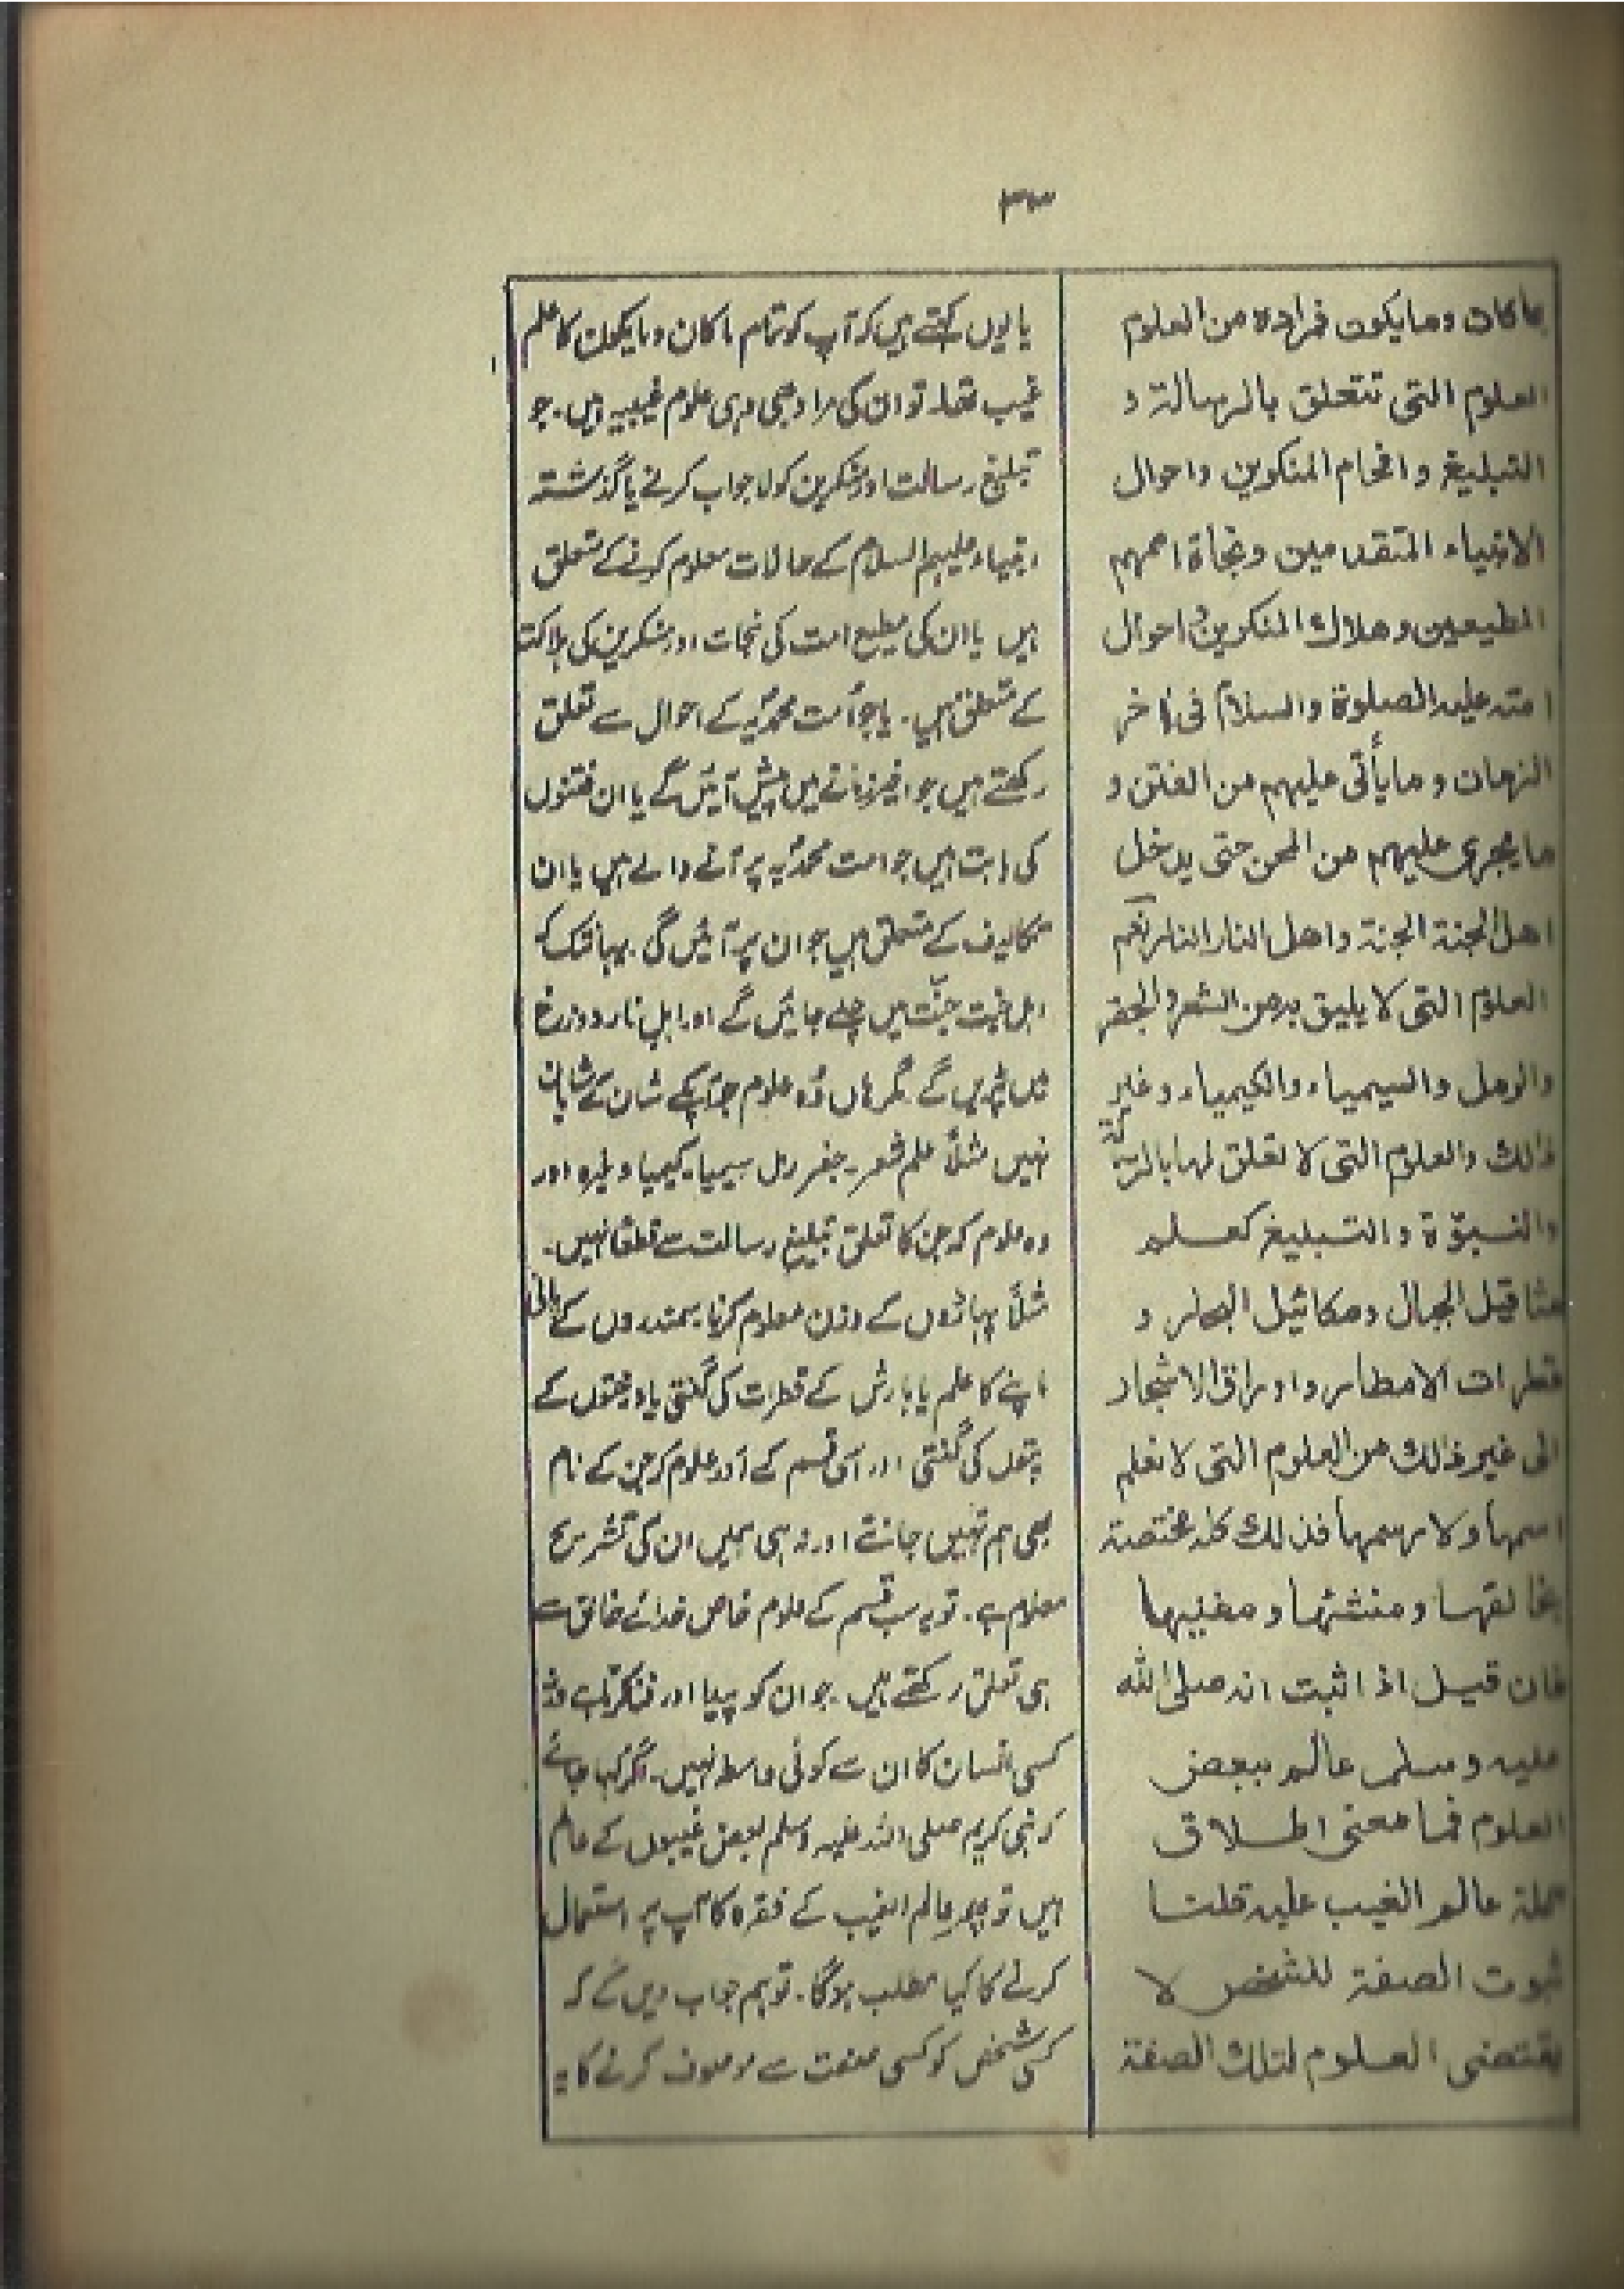 ٣٣
بما كان وما يكون فمراده من العلوم
العلوم التى تتعلق بالرسالة و
التبليغ و افحام المنكرين واحوال
الانبياء المتقدمين ونجاة اممهم
المطيعين وهلاك المنكرين و احوال
امته عليه الصلوة والسلام فى آخر
الزمان و ما يأتى عليهم من الفتن و
ما يجرى عليهم من المحن حتى يدخل
اهل الجنة الجنة واهل النار النار نعم
العلوم التى لا يليق به من الشعر والجفر
والرمل والسيمياء والكيمياء وغير
ذالك والعلوم التى لا تعلق لها بالرسالة
والنبوّة والتبليغ كعلم
مثاقيل الجبال ومكائيل البحار و
قطرات الامطار واوراق الاشجار
الى غير ذالك من العلوم التى لا نعلم
اسمها ولا رسمها فذلك كله مختصة
بخالقها ومنشئها ومغنيها
فان قيل اذا ثبت انه صلى الله
عليه وسلم عالم ببعض
العلوم فما معنى اطلاق
جملة عالم الغيب عليه قلنا
ثبوت الصفة للشخص لا
يقتضى العلوم لتلك الصفة
یا یوں کہتے ہیں کہ آپ کو تمام ماکان و مایکون کا علم
غیب تھا۔ تو ان کی مراد بھی وہی علوم غیبیہ ہیں۔ جو
تبلیغ رسالت اور منکرین کو لاجواب کرنے یا گذشتہ
انبیاء علیہم السلام کے حالات معلوم کرنے کے متعلق
ہیں یا ان کی مطیع امت کی نجات اور منکرین کی ہلاکت
کے متعلق ہیں۔ یا جو اُمت محمدیہ کے احوال سے تعلق
رکھتے ہیں جو اخیر زمانے میں پیش آئیں گے یا ان فتنوں
کی بابت ہیں جو امت محمدیہ پر آنے والے ہیں یا ان
تکالیف کے متعلق ہیں جو ان پر آئیں گی۔ یہانتک کہ
اہل جنت جنّت میں چلے جائیں گے اور اہل نار دوزخ
میں پڑیں گے۔ مگر ہاں وُہ علوم جو آپکے شان کے شایاں
نہیں مثلاً علم شعر۔ جفر رمل سیمیا۔ کیمیا وغیرہ اور
وہ علوم کہ جن کا تعلق تبلیغ رسالت سے قطعًا نہیں۔
مثلاً پہاڑوں کے وزن معلوم کرنا۔ سمندروں کے پانی
ناپنے کا علم یا بارش کے قطرات کی گنتی یا درختوں کے
پتوں کی گنتی اور اسی قسم کے اَور علوم کہ جن کے نام
بھی ہم نہیں جانتے اور نہ ہی ہمیں ان کی تشریح
معلوم ہے۔ تو یہ سب قسم کے علوم خاص خدائے خالق سے
ہی تعلق رکھتے ہیں۔ جو ان کو پیدا اور فنا کرتا ہے ورنہ
کسی انسان کا ان سے کوئی واسطہ نہیں۔ اگر کہا جائے
کہ نبی کریم صلی اللہ علیہ وسلم بعض غیبوں کے عالم
ہیں تو پھر عالم الغیب کے فقرہ کا آپ پر استعمال
کرنے کا کیا مطلب ہوگا۔ تو ہم جواب دیں گے کہ
کسی شخص کو کسی صفت سے موصوف کرنے کا یہ